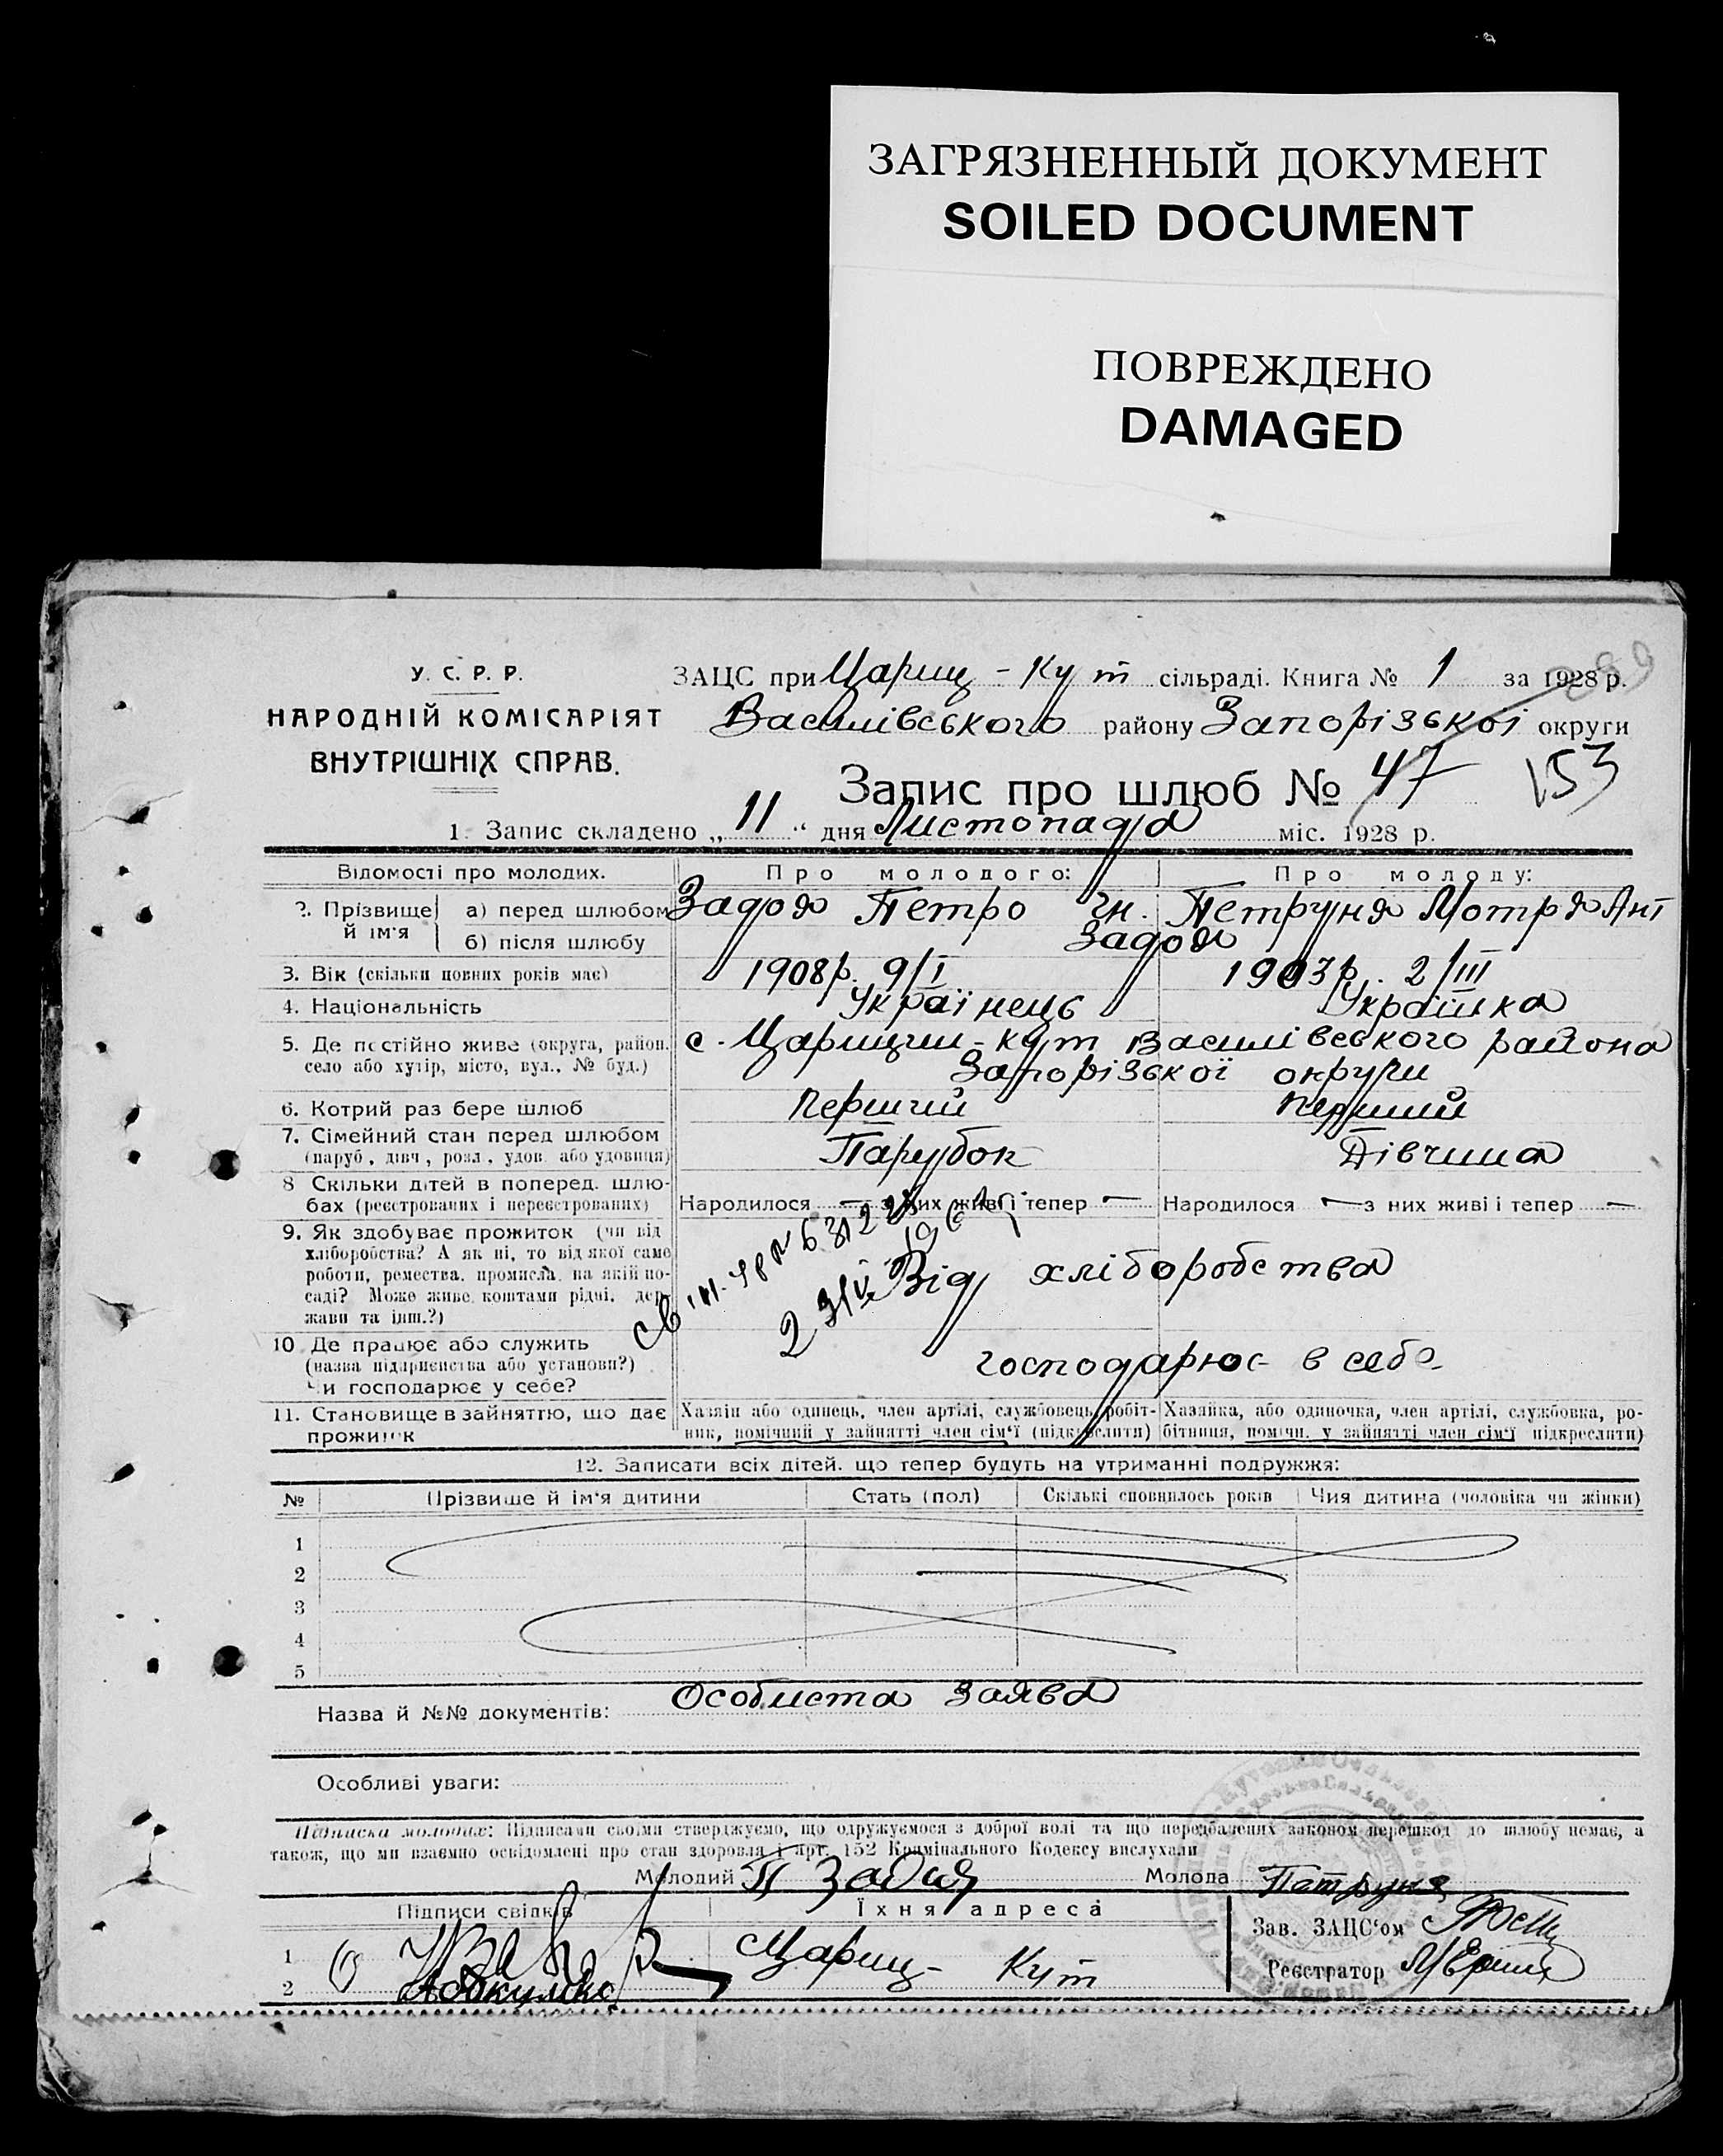 ЗАГРЯЗНЕННЫЙ ДОКУМЕНТ
SOILED DOCUMENT
ПОВРЕЖДЕНО
DAMAGED
У. С. Р. Р.
НАРОДНІЙ КОМІСАРІЯТ
ВНУТРІШНІХ СПРАВ.
ЗАЦС при Цариц-Кут сільраді. Книга № 1 за 1928 р.
Василівського району Запорізької округи
Запис про шлюб № 47 153
1. Запис складено „11“ дня Листопада міс. 1928 р.
Відомості про молодих. Про молодого: Про молоду:
2. Прізвище й ім'я а) перед шлюбом Задоя Петро Гн. Петруня Мотря Ант
б) після шлюбу Задоя
3. Вік (скільки повних років має) 1908р. 9/I 1903р. 2/III
4. Національність Українець Українка
5. Де постійно живе (округа, район. с. Царицин-кут Василівського района
село або хутір, місто, вул., № буд.) Запорізької округи
6. Котрий раз бере шлюб Перший Перший
7. Сімейний стан перед шлюбом Парубок Дівчина
(паруб., дівч., розл., удов. або удовиця)
8 Скільки дітей в поперед. шлю-
бах (реєстрованих і нереєстрованих) Народилося — з них живі і тепер — Народилося — з них живі і тепер —
9. Як здобуває прожиток (чи від
хліборобства? А як ні, то від якої саме
роботи, ремества, промисла, на якій по-
саді? Може живе коштами рідні, дер-
жави та інш.?)
Від хліборобства
10 Де працює або служить
(назва підприємства або установи?)
Чи господарює у себе?
господарює в себе
11. Становище в зайняттю, що дає Хазяїн або одинець, член артілі, службовець, робіт- Хазяйка, або одиночка, член артілі, службовка, ро-
прожиток ник, помічний у зайнятті член сім'ї (підкреслити) бітниця, помічн. у зайнятті член сім'ї підкреслити)
12. Записати всіх дітей, що тепер будуть на утриманні подружжя:
№ Прізвище й ім'я дитини Стать (пол) Скількі сповнилось років Чия дитина (чоловіка чи жінки)
1
2
3
4
5
Назва й №№ документів: Особиста заява
Особливі уваги:
Підписка молодих: Підписами своїми стверджуємо, що одружуємося з доброї волі та що передбачених законом перешкод до шлюбу немає, а
також, що ми взаємно освідомлені про стан здоровля і арт. 152 Кримінального Кодексу вислухали
Молодий П Задия Молода Петруня
Підписи свідків Їхня адреса Зав. ЗАЦС'ом
1 Цариц-Кут Реєстратор
2